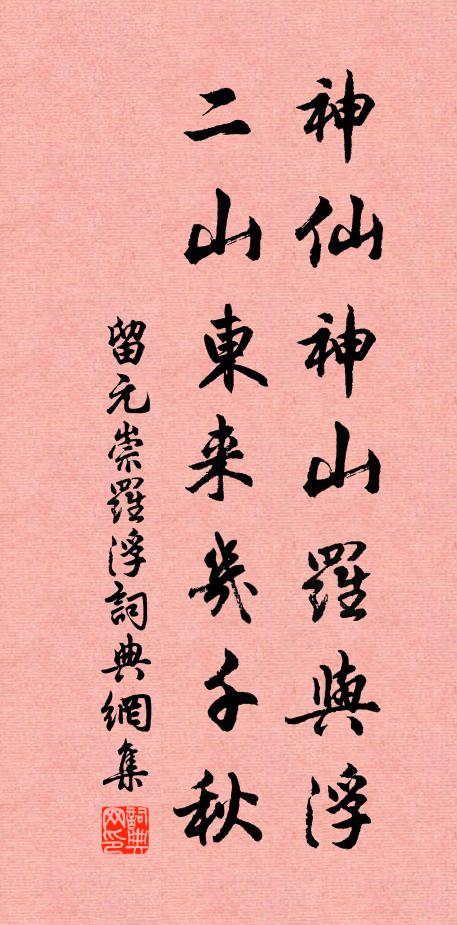 神仙神山羅與浮
二山東来幾千秋
留元崇羅浮詞典網集
詞典网印